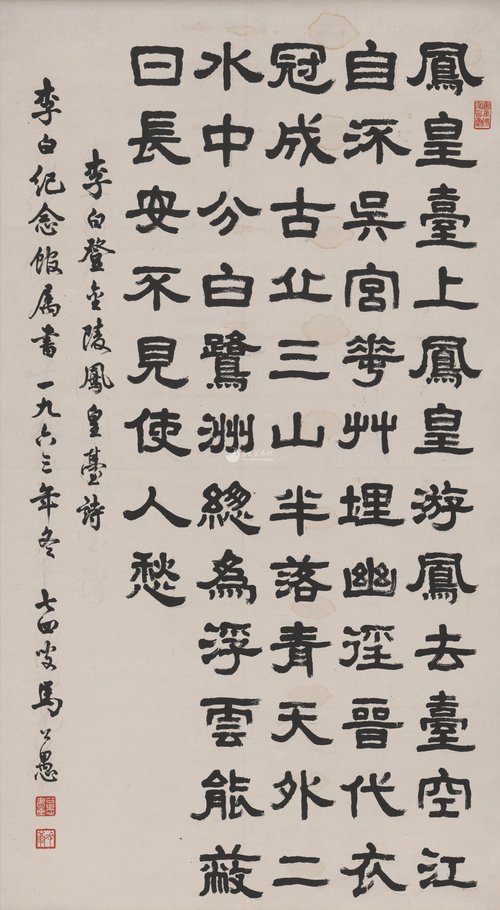 鳳皇臺上鳳皇游鳳去臺空江
自流吳宮華艸埋幽徑晉代衣
冠成古丘三山半落青天外二
水中分白鷺洲緫為浮雲能蔽
日長安不見使人愁
李白登金陵鳳皇臺詩
李白紀念館属書一九六三年冬 七四叟馬公愚